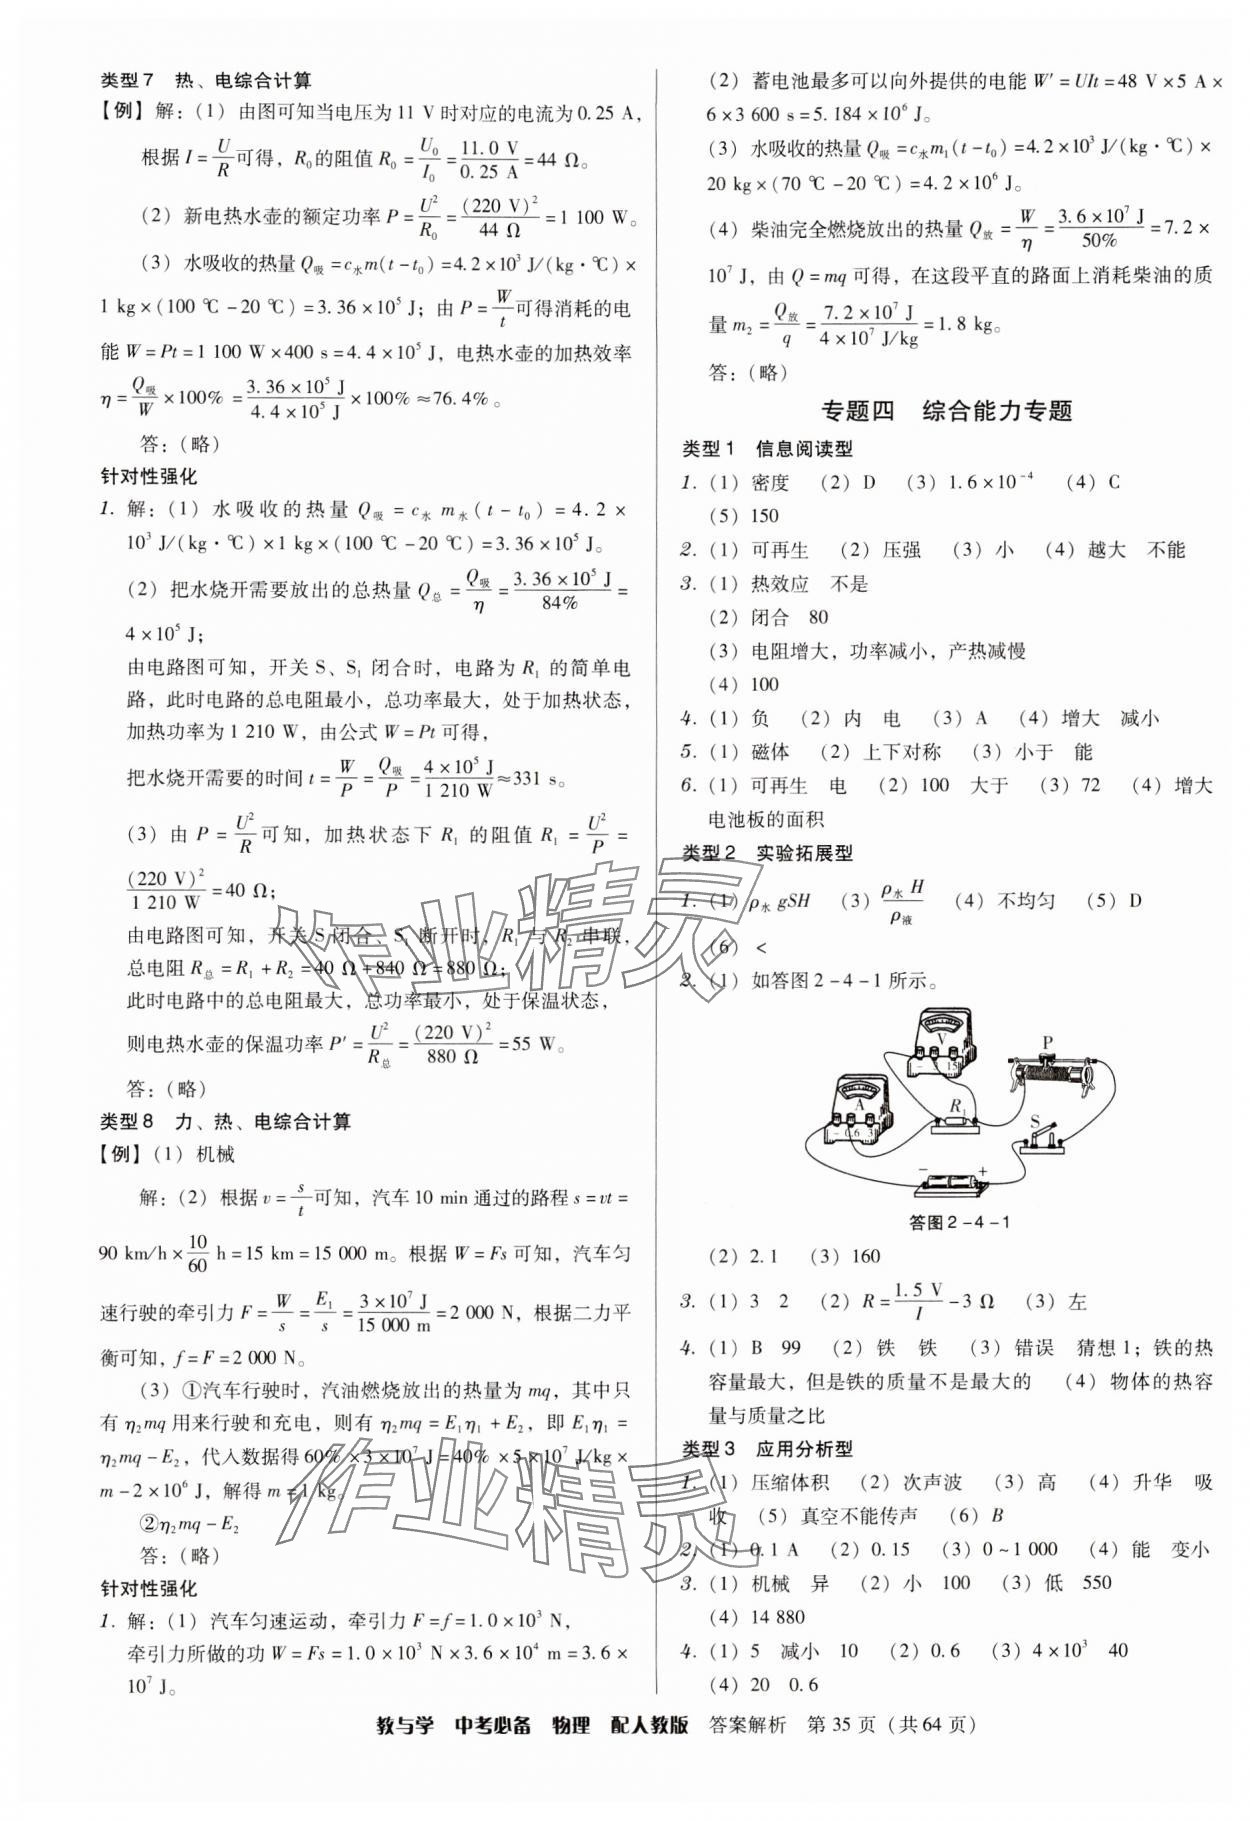 类型7 热、电综合计算
【例】解：(1) 由图可知当电压为11 V时对应的电流为0.25 A，
根据 I=U/R 可得，R₀的阻值 R₀=U₀/I₀=11.0 V/0.25 A=44 Ω。
(2) 新电热水壶的额定功率 P=U²/R₀=(220 V)²/44 Ω=1 100 W。
(3) 水吸收的热量 Q吸=c水m(t-t₀)=4.2×10³ J/(kg·℃)×
1 kg×(100 ℃-20 ℃)=3.36×10⁵ J；由 P=W/t 可得消耗的电
能 W=Pt=1 100 W×400 s=4.4×10⁵ J，电热水壶的加热效率
η=Q吸/W×100%=3.36×10⁵ J/4.4×10⁵ J×100%≈76.4%。
答：(略)
针对性强化
1. 解：(1) 水吸收的热量 Q吸=c水 m水(t-t₀)=4.2×
10³ J/(kg·℃)×1 kg×(100 ℃-20 ℃)=3.36×10⁵ J。
(2) 把水烧开需要放出的总热量 Q总=Q吸/η=3.36×10⁵ J/84%=
4×10⁵ J；
由电路图可知，开关 S、S₁ 闭合时，电路为 R₁ 的简单电
路，此时电路的总电阻最小，总功率最大，处于加热状态，
加热功率为1 210 W，由公式 W=Pt 可得，
把水烧开需要的时间 t=W/P=Q吸/P=4×10⁵ J/1 210 W≈331 s。
(3) 由 P=U²/R 可知，加热状态下 R₁ 的阻值 R₁=U²/P=
(220 V)²/1 210 W=40 Ω；
由电路图可知，开关 S 闭合、S₁ 断开时，R₁ 与 R₂ 串联，
总电阻 R总=R₁+R₂=40 Ω+840 Ω=880 Ω；
此时电路中的总电阻最大，总功率最小，处于保温状态，
则电热水壶的保温功率 P′=U²/R总=(220 V)²/880 Ω=55 W。
答：(略)
类型8 力、热、电综合计算
【例】(1) 机械
解：(2) 根据 v=s/t 可知，汽车10 min通过的路程 s=vt=
90 km/h×10/60 h=15 km=15 000 m。根据 W=Fs 可知，汽车匀
速行驶的牵引力 F=W/s=E₁/s=3×10⁷ J/15 000 m=2 000 N，根据二力平
衡可知，f=F=2 000 N。
(3) ①汽车行驶时，汽油燃烧放出的热量为 mq，其中只
有 η₂mq 用来行驶和充电，则有 η₂mq=E₁η₁+E₂，即 E₁η₁=
η₂mq-E₂，代入数据得60%×3×10⁷ J=40%×5×10⁷ J/kg×
m-2×10⁶ J，解得 m=1 kg。
②η₂mq-E₂
答：(略)
针对性强化
1. 解：(1) 汽车匀速运动，牵引力 F=f=1.0×10³ N，
牵引力所做的功 W=Fs=1.0×10³ N×3.6×10⁴ m=3.6×
10⁷ J。
(2) 蓄电池最多可以向外提供的电能 W′=UIt=48 V×5 A×
6×3 600 s=5.184×10⁶ J。
(3) 水吸收的热量 Q吸=c水m₁(t-t₀)=4.2×10³ J/(kg·℃)×
20 kg×(70 ℃-20 ℃)=4.2×10⁶ J。
(4) 柴油完全燃烧放出的热量 Q放=W/η=3.6×10⁷ J/50%=7.2×
10⁷ J，由 Q=mq 可得，在这段平直的路面上消耗柴油的质
量 m₂=Q放/q=7.2×10⁷ J/4×10⁷ J/kg=1.8 kg。
答：(略)
专题四 综合能力专题
类型1 信息阅读型
1. (1) 密度 (2) D (3) 1.6×10⁻⁴ (4) C
(5) 150
2. (1) 可再生 (2) 压强 (3) 小 (4) 越大 不能
3. (1) 热效应 不是
(2) 闭合 80
(3) 电阻增大，功率减小，产热减慢
(4) 100
4. (1) 负 (2) 内 电 (3) A (4) 增大 减小
5. (1) 磁体 (2) 上下对称 (3) 小于 能
6. (1) 可再生 电 (2) 100 大于 (3) 72 (4) 增大
电池板的面积
类型2 实验拓展型
1. (1) ρ水 gSH (3) ρ水 H/ρ液 (4) 不均匀 (5) D
(6) <
2. (1) 如答图2-4-1所示。
V
- 15
P
A
- 0.6 3
R₁
S
- +
答图2-4-1
(2) 2.1 (3) 160
3. (1) 3 2 (2) R=1.5 V/I-3 Ω (3) 左
4. (1) B 99 (2) 铁 铁 (3) 错误 猜想1；铁的热
容量最大，但是铁的质量不是最大的 (4) 物体的热容
量与质量之比
类型3 应用分析型
1. (1) 压缩体积 (2) 次声波 (3) 高 (4) 升华 吸
收 (5) 真空不能传声 (6) B
2. (1) 0.1 A (2) 0.15 (3) 0~1 000 (4) 能 变小
3. (1) 机械 异 (2) 小 100 (3) 低 550
(4) 14 880
4. (1) 5 减小 10 (2) 0.6 (3) 4×10³ 40
(4) 20 0.6
教与学 中考必备 物理 配人教版 答案解析 第35页（共64页）
作业精灵
作业精灵